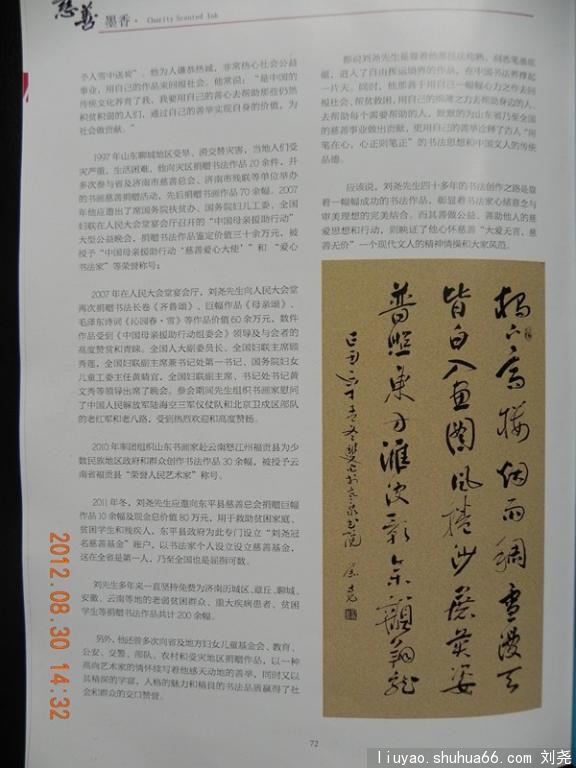 慈善 墨香· Charity Scented Ink
予人雪中送炭”。他为人谦恭热诚，非常热心社会公益
事业，用自己的作品来回报社会。他常说：“是中国的
传统文化养育了我，我要用自己的善心去帮助那些仍然
积贫积弱的人们，通过自己的善举实现自身的价值，为
社会做贡献。”
1997年山东聊城地区受旱、涝交替灾害，当地人们受
灾严重，生活困难，他向灾区捐赠书法作品20余件，并
多次参与省及济南市慈善总会、济南市残联等单位举办
的书画捐赠活动，先后捐赠书画作品70余幅。2007
年他应邀出了席国务院扶贫办、国务院妇儿工委、全国
妇联在人民大会堂宴会厅召开的“中国母亲援助行动”
大型公益晚会，捐赠书法作品鉴定价值三十余万元，被
授予“中国母亲援助行动‘慈善爱心大使’”和“爱心
书法家”等荣誉称号；
2007年在人民大会堂宴会厅，刘尧先生向人民大会堂
再次捐赠书法长卷《齐鲁颂》、巨幅作品《母亲颂》、
毛泽东诗词《沁园春·雪》等作品价值60余万元，数件
作品受到《中国母亲援助行动组委会》领导及与会者的
高度赞赏和青睐。全国人大副委员长、全国妇联主席顾
秀莲，全国妇联副主席兼书记处第一书记、国务院妇女
儿童工委主任黄晴宜，全国妇联副主席、书记处书记黄
文秀等领导出席了晚会。参会期间先生组织书画家慰问
了中国人民解放军陆海空三军仪仗队和北京卫戍区部队
的老红军和老八路，受到热烈欢迎和高度赞扬。
2010年率团组织山东书画家赴云南怒江州福贡县为少
数民族地区政府和群众创作书法作品30余幅，被授予云
南省福贡县“荣誉人民艺术家”称号。
2011年冬，刘尧先生应邀向东平县慈善总会捐赠巨幅
作品10余幅及现金总价值80万元，用于救助贫困家庭、
贫困学生和残疾人，东平县政府为此专门设立“刘尧冠
名慈善基金”账户，以书法家个人设立设立慈善基金，
这在全省是第一人，乃至全国也是屈指可数。
刘先生多年来一直坚持免费为济南历城区、章丘、聊城、
安徽、云南等地的老弱贫困群众、重大疾病患者、贫困
学生等捐赠书法作品共计200余幅。
另外，他还曾多次向省及地方妇女儿童基金会、教育、
公安、交警、部队、农村和受灾地区捐赠作品，以一种
高尚艺术家的情怀续写着他感天动地的善举，同时又以
其精深的学富，人格的魅力和精良的书法品质赢得了社
会和群众的交口赞誉。
片天。同时，他那善于用自己一幅幅心力之作去回
报社会、帮贫救困，用自己的绵薄之力去帮助身边的人、
去帮助每个需要帮助的人，默默的为山东省乃至全国
的慈善事业做出贡献，更用自己的善举诠释了古人“用
笔在心，心正则笔正”的书法思想和中国文人的传统
品德。
应该说，刘尧先生四十多年的书法创作之路是靠
着一幅幅成功的书法作品，彰显着书法家心绪意念与
审美理想的完美结合。而其善做公益、善助他人的慈
爱思想和行动，则映证了他心怀慈善“大爱无言，慈
善无价”一个现代文人的精神情操和大家风范。
72
2012.08.30 14:32
liuyao.shuhua66.com 刘尧